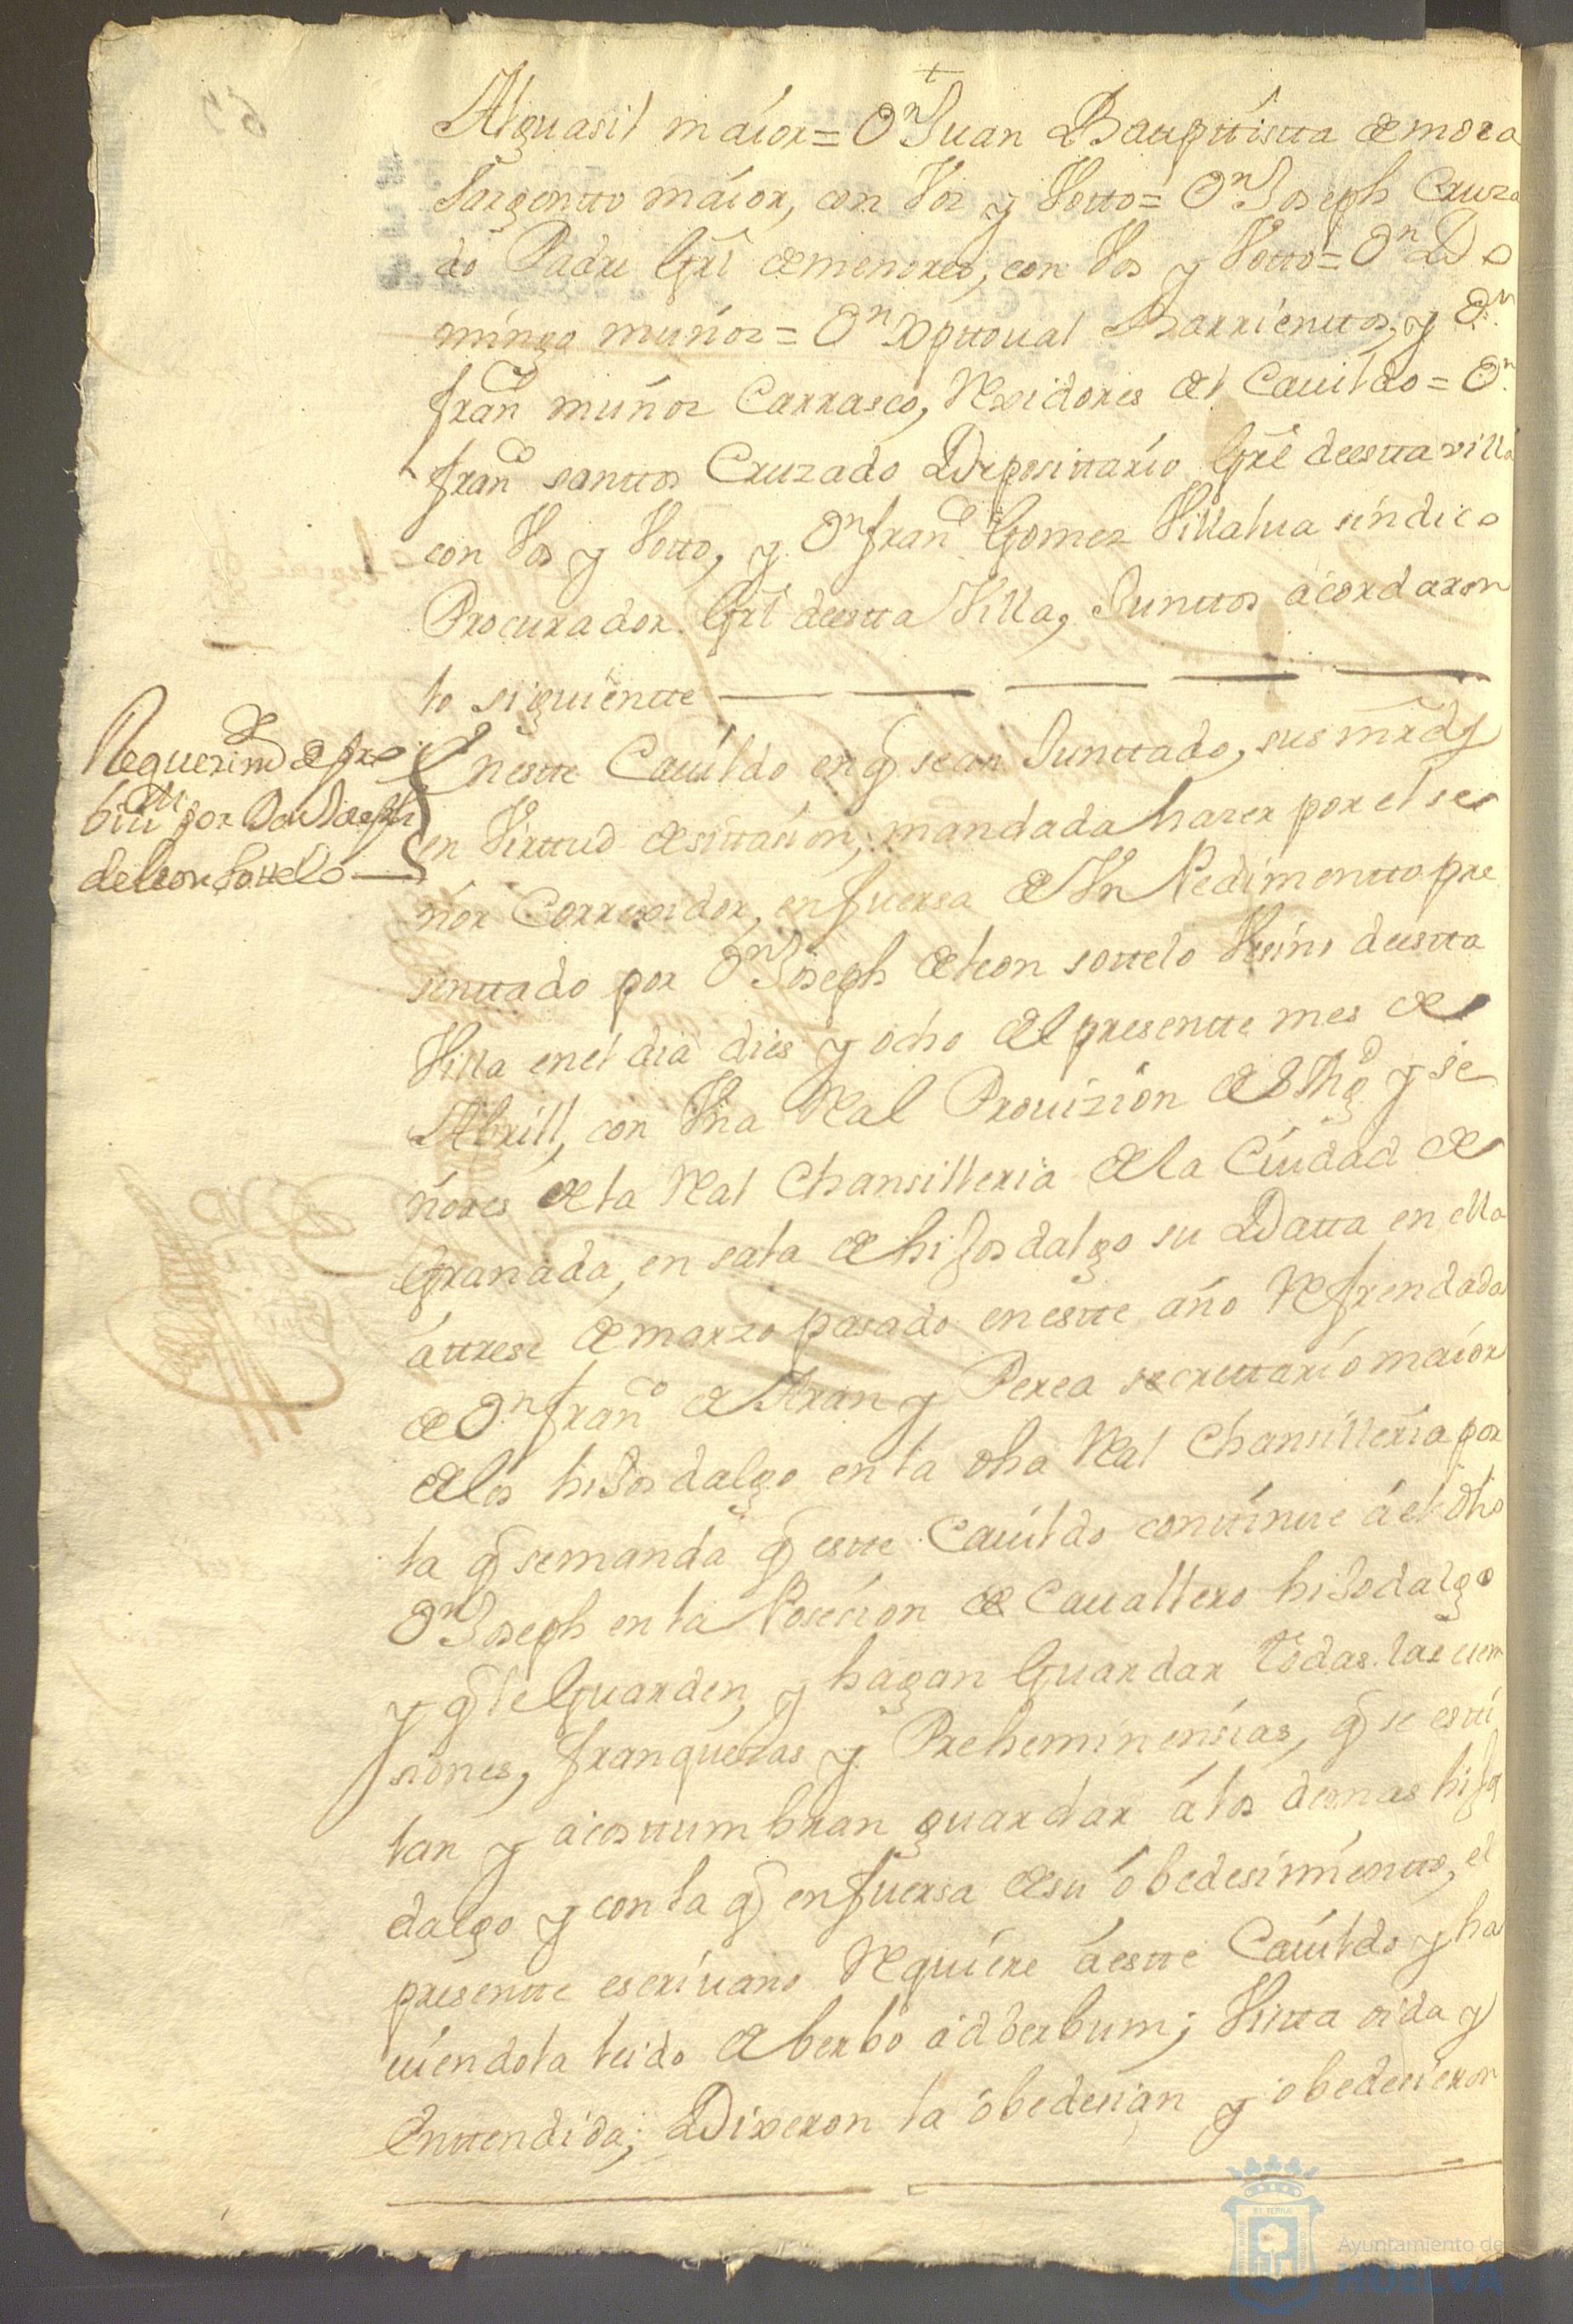 Alguasil maior = Dn Juan Bauptista de mora
Sargentto maior, con Vos y Votto = Dn Joseph Cruza
do Padre Gral de menores, con Vos y Votto = Dn Do
mingo muños = Dn Xpttoual Barrienttos, y Dn
Franco muños Carrasco, Rexidores del Cauildo = Dn
Franco santtos Cruzado Deposittario Gral de estta villa
con Vos y Votto, y Dn Franco Gomez Villalua sindico
Procurador Gral de estta Villa, Junttos acordaron
lo siguientte
Requerimto de pro
biiii por Dn Joseph
de leon sottelo
En estte Cauildo en q se an Junttado, sus mrds
en Virttud de sittasion, mandada hazer por el se
ñor Correxidor, en fuersa de Vn Pedimentto pre
senttado por Dn Joseph de leon sottelo Vesino de estta
Villa en el dia dies y ocho del presentte mes de
Abrill, con Vna Real Prouizion de S Mgd y se
ñores de la Real Chansilleria de la Ciudad de
Granada, en sala de hijosdalgo su Datta en ella
a ttrese de marzo pasado en estte año Refrendada
de Dn Franco de Aran y Perea secrettario maior
de los hiJosdalgo en la dha Real Chansilleria por
la q se manda q estte Cauildo conttinue a el dho
Dn Joseph en la Posesion de Cauallero hiJodalgo
y q le Guarden, y hagan Guardar todas las exem
siones, franquezas y Preheminensias, q se esti
lan y acosttumbran guardar a los demas hijos
dalgo y con la q en fuersa de su obedesimientto, el
presentte escriuano Requiere a estte Cauildo y ha
uiendola leido de berbo ad berbum; Vistta oida y
Enttendida; Dixeron la obedesian y obedesieron
Ayuntamiento de
HUELVA